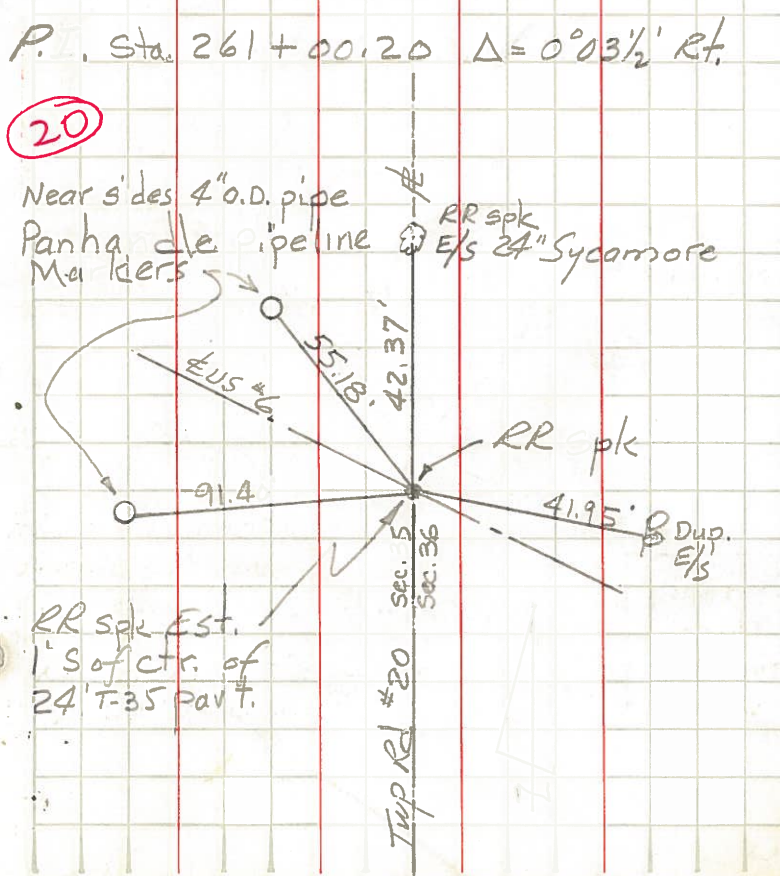 P. . Sta. 261+00.20 Δ = 0°03½' Rt.
20
Near s des 4" O.D. pipe
Panha dle ipeline
Ma kers
RR spk
E/S 24" Sycamore
55.18'
42.37'
℄ US #6
RR pk
-91.4
41.95'
Dup.
E/S
sec. 5
sec. 36
RR spk Est.
1' S of ctr. of
24' T-35 pav't.
Twp Rd #20